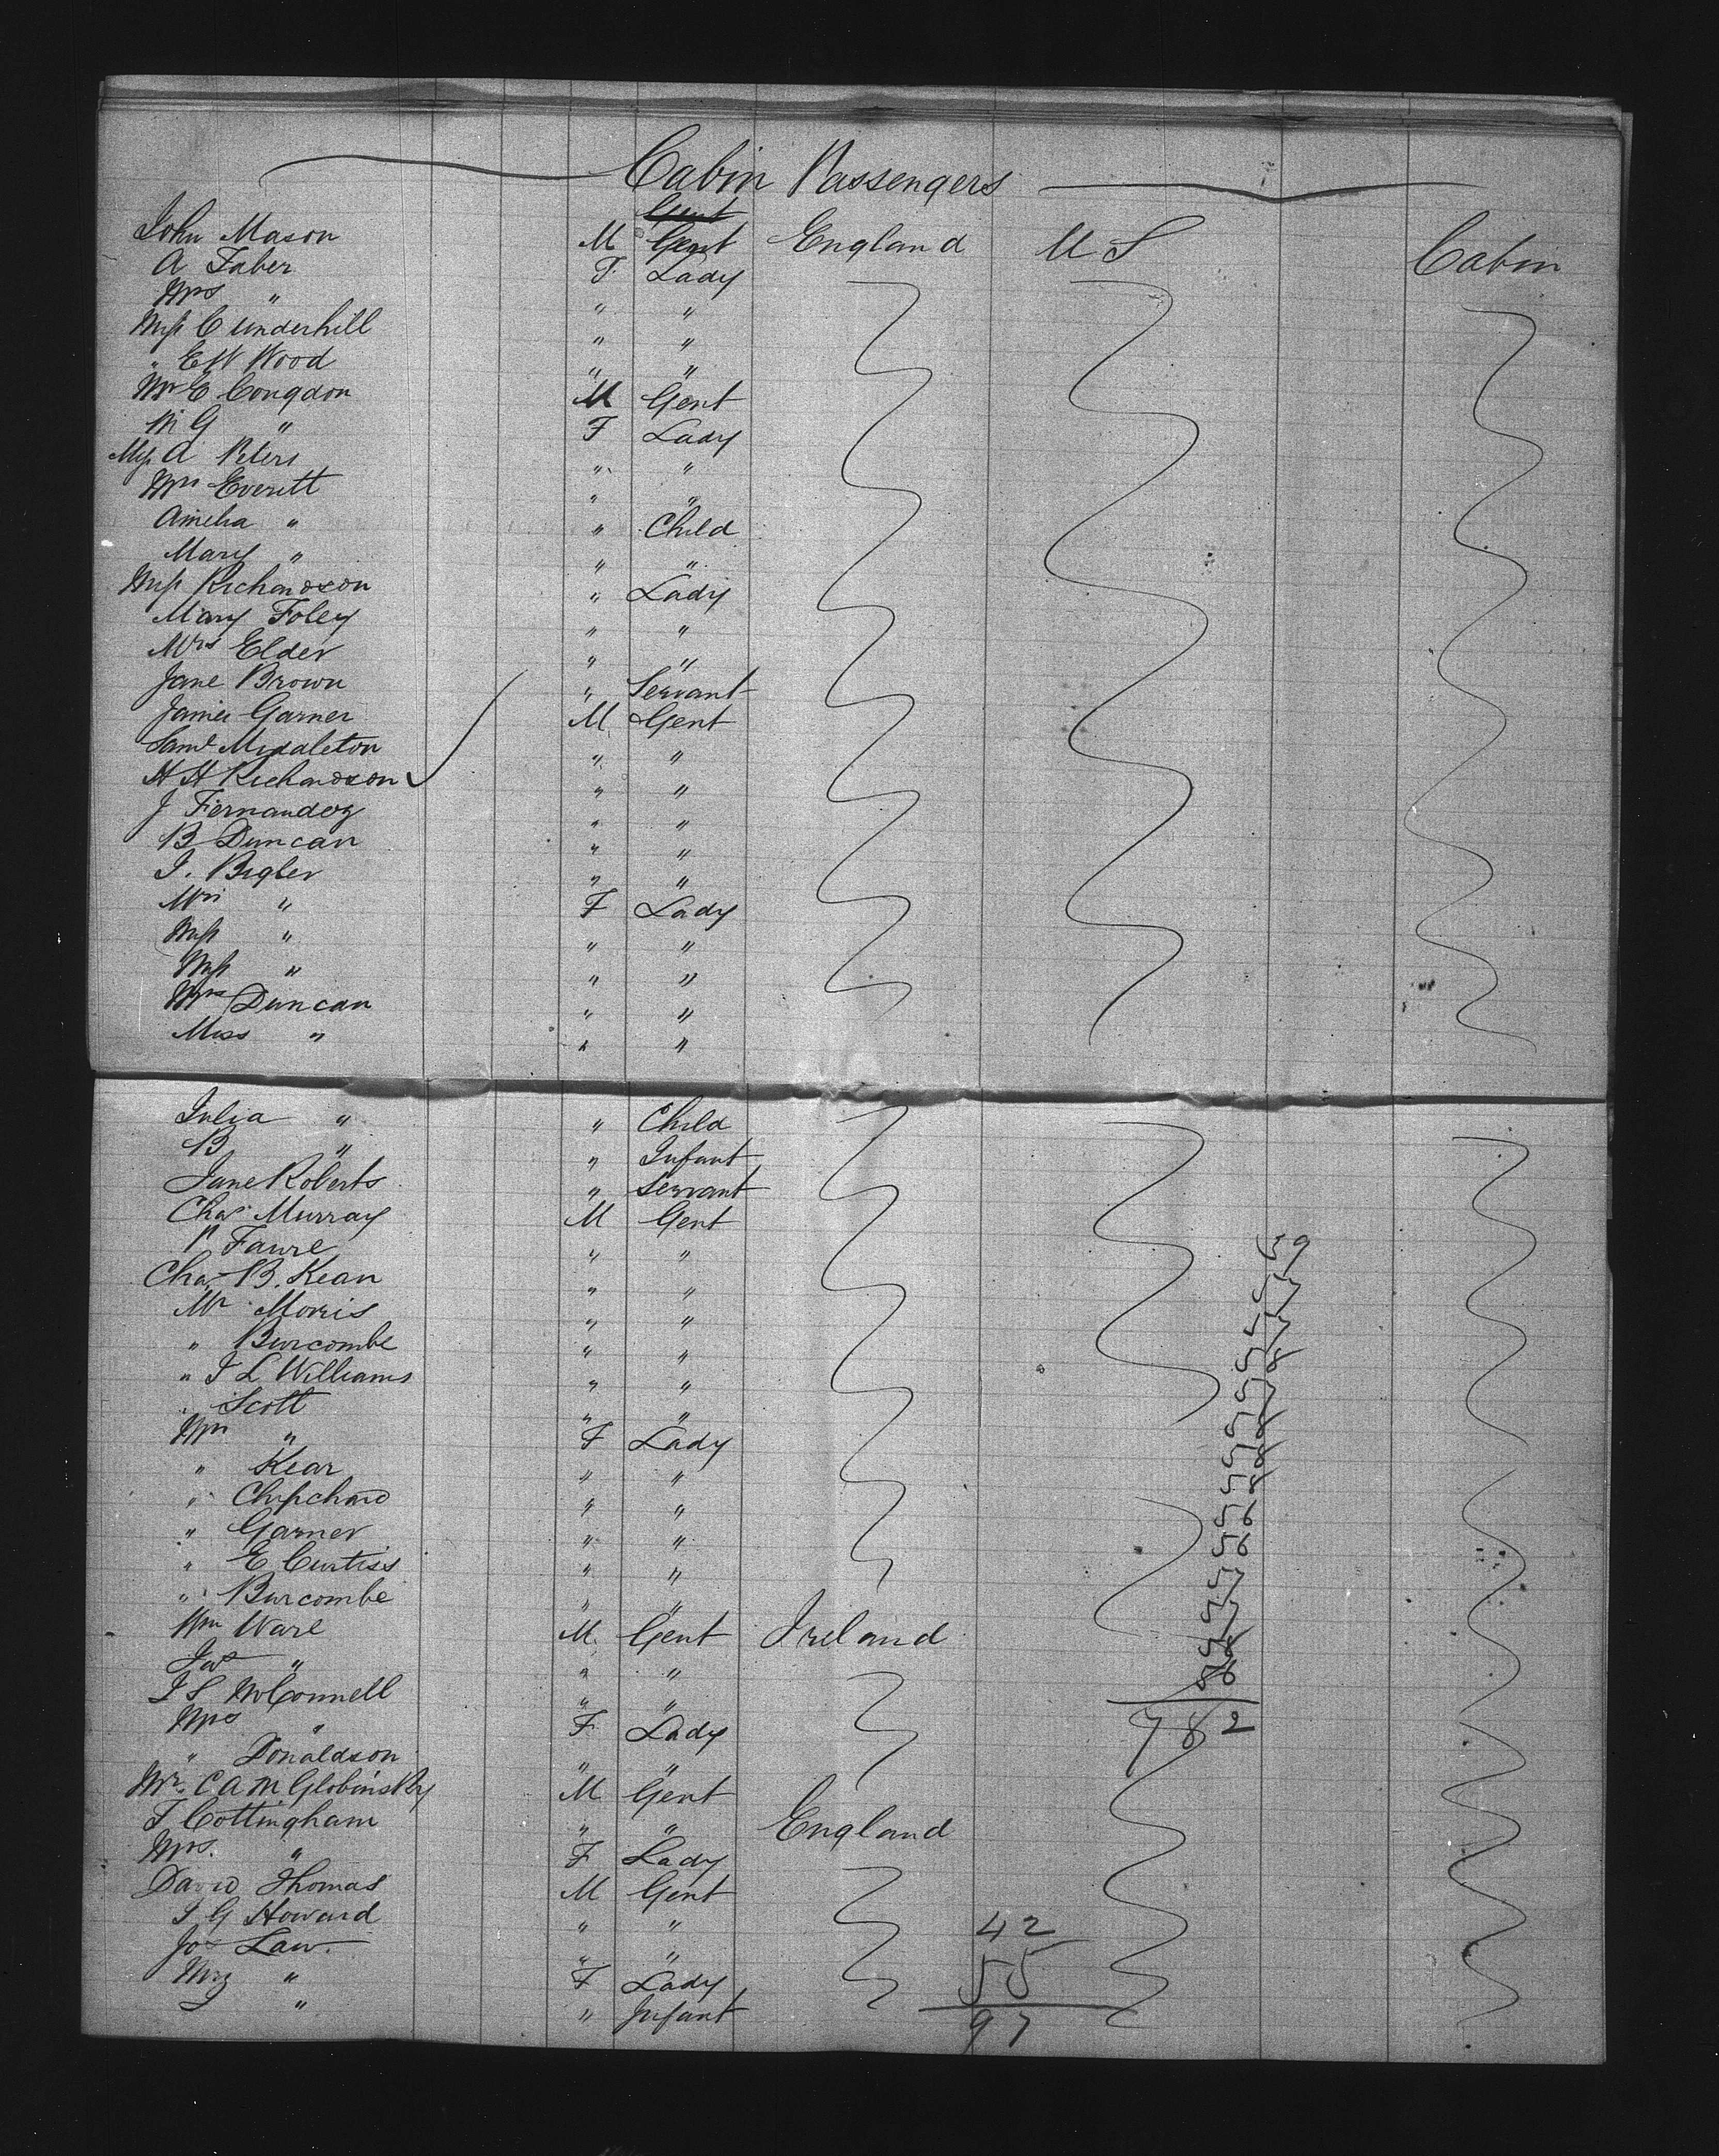 Cabin Passengers
Gent
John Mason M Gent England U S Cabin
A Faber F Lady
Mrs " " "
Miss C Underhill " "
" E W Wood " "
Mr E Congdon M Gent
M G " F Lady
Miss A Peters " "
Mrs Everett " "
Amelia " " Child
Mary " " "
Miss Richardson " Lady
Mary Foley " "
Mrs Elder " "
Jane Brown " Servant
James Garner M Gent
Saml Middleton " "
H H Richardson " "
J Fernandez " "
B Duncan " "
J. Bigler " "
Mrs " F Lady
Miss " " "
Miss " " "
Mrs Duncan " "
Miss " " "
Julia " " Child
B " " Infant
Jane Roberts " Servant
Chas Murray M Gent
P Faure " "
Chas B. Kean " "
Mr Morris " "
" Burcombe " "
" J L Williams " "
" Scott " "
Mrs " F Lady
" Kear " "
" Chipchard " "
" Garner " "
" E Curtiss " "
" Burcombe " "
Wm Ware M Gent Ireland
Jas " " "
J S McConnell " "
Mrs " F Lady
" Donaldson " "
Mr. C A M Globinsky M Gent
T Cottingham " " England
Mrs. " F Lady
David Thomas M Gent
J G Howard " "
Jos Law. " "
Mrs " F Lady
" " Infant
59
782
42
55
97